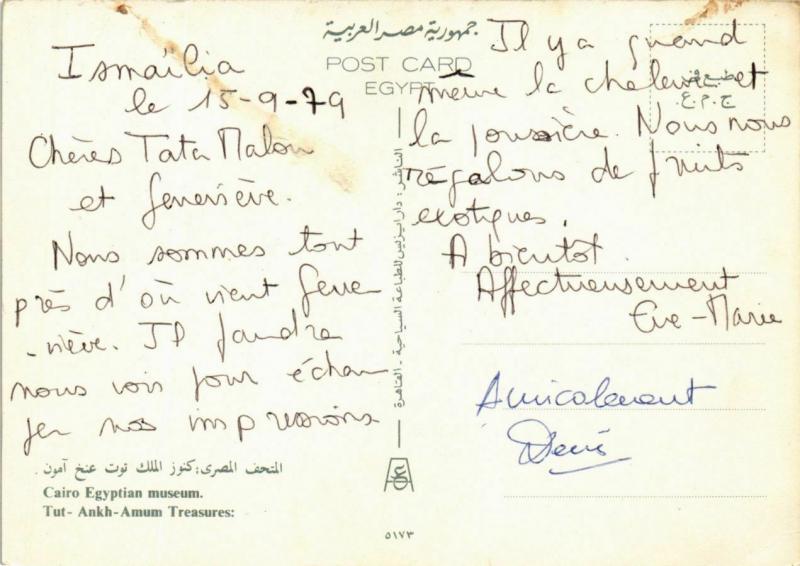 جمهورية مصر العربية
POST CARD
EGYPT
Ismaïlia
le 15-9-79
Chères Tata Malou
et Geneviève.
Nous sommes tout
près d'où vient Gene
-viève. Il faudra
nous voir pour échan
ger nos impressions
Il y a quand
même la chaleur et
la poussière. Nous nous
régalons de fruits
exotiques.
A bientôt.
Affectueusement
Eve-Marie
Amicalement
Denis
طابع
ج.م.ع.
الناشر: دار ايزيس للطباعة السياحية - القاهرة
المتحف المصرى: كنوز الملك توت عنخ آمون.
Cairo Egyptian museum.
Tut- Ankh-Amum Treasures:
٥١٧٣